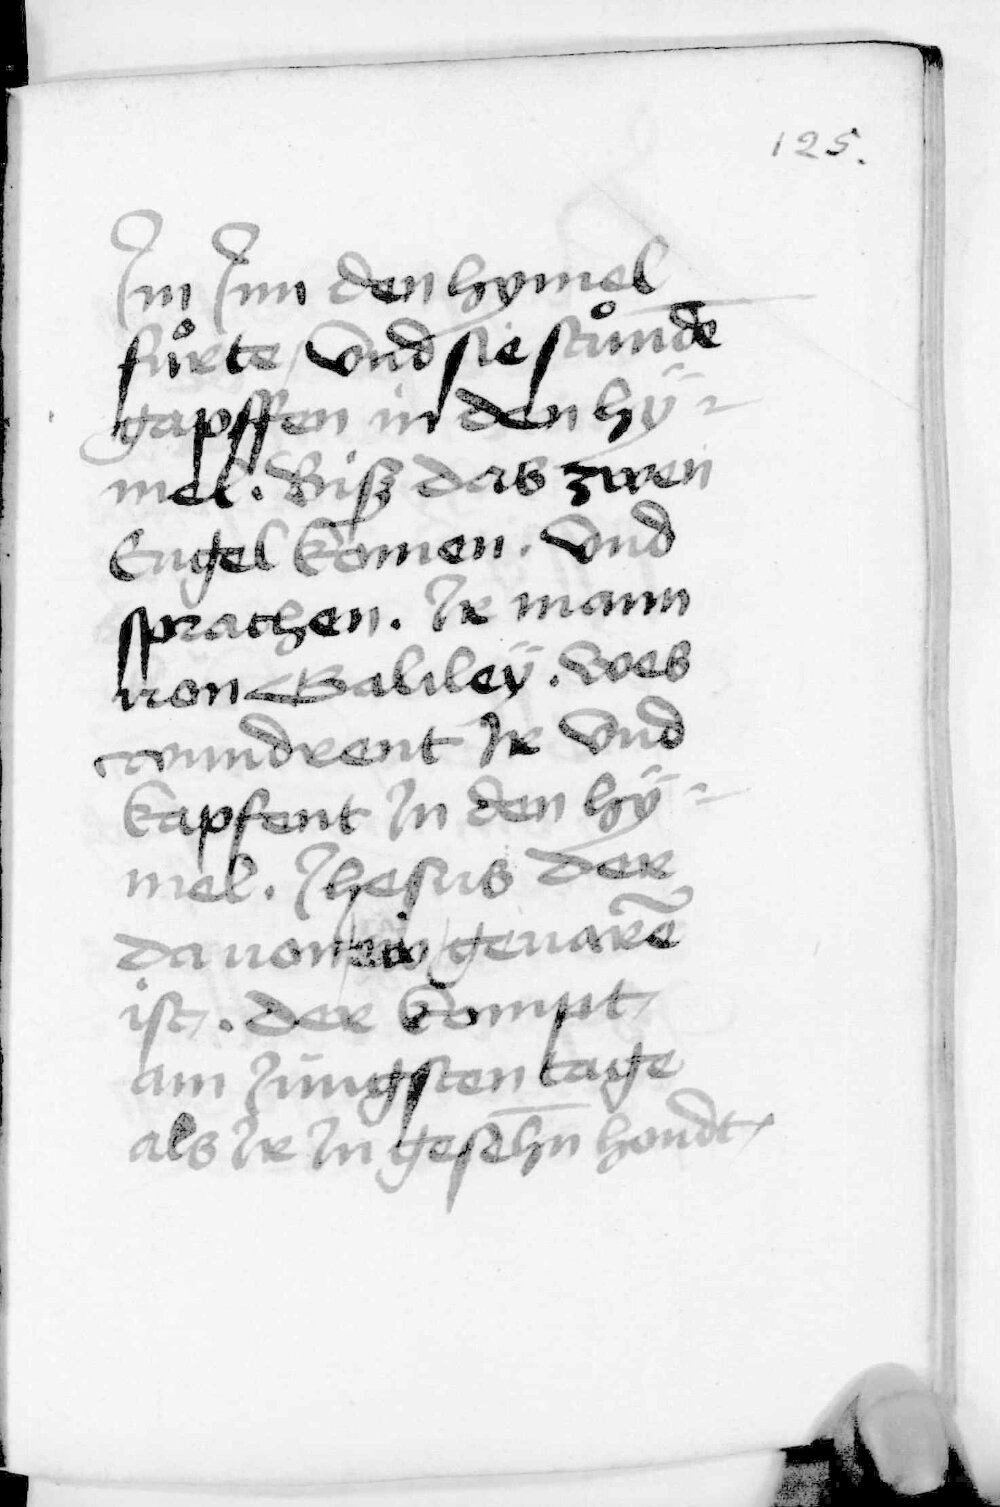 125.
In Inn den hymel
fůrte / Vnd sie stůndē
gapffen in den hÿ-
mel. Biß das zwen
Engel komen. Vnd
sprachen. Ir mann
von Galiley. Wes
wundrent Ir Vnd
kapfent In den hÿ-
mel. Jhesus der
da von geuarē
ist. der kompt
am Jüngsten tage
als Ir In gesehn̄ hondt